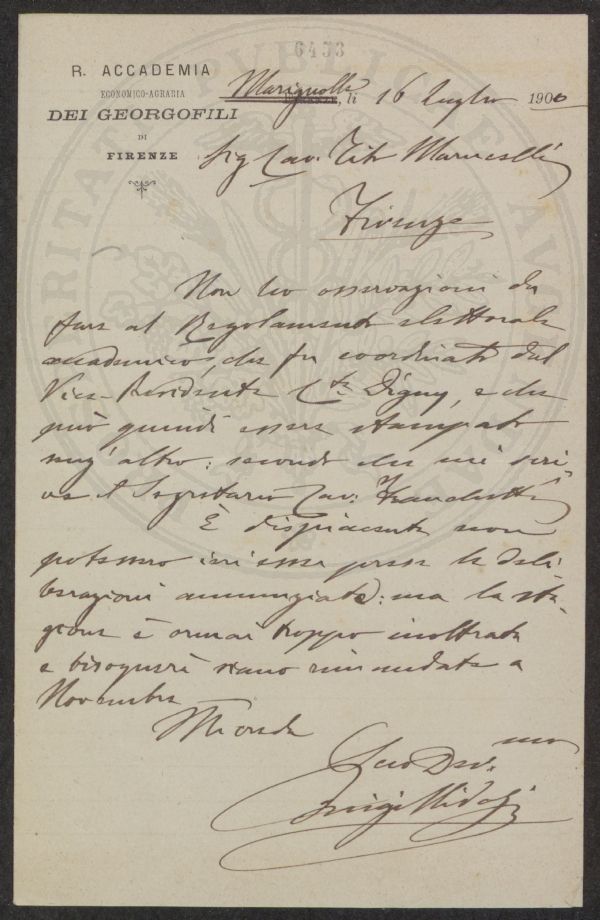 6433
R. ACCADEMIA
ECONOMICO-AGRARIA
DEI GEORGOFILI
DI
FIRENZE
Marignolle Firenze, li 16 luglio 1900
Sig Cav. Tito Marucelli
Firenze
Non ho osservazioni da
fare al Regolamento elettorale
accademico, che fu coordinato dal
Vice-Presidente Cte Digny, e che
può quindi essere stampato
senz'altro: secondo che mi scri-
ve il Segretario Cav. Franchetti
È dispiacente non
potessero ieri esser prese le deli
berazioni annunziate: ma la sta-
gione è ormai troppo inoltrata
e bisognerà siano rimandate a
Novembre
Mi creda
Suo Dev.mo
Luigi Ridolfi